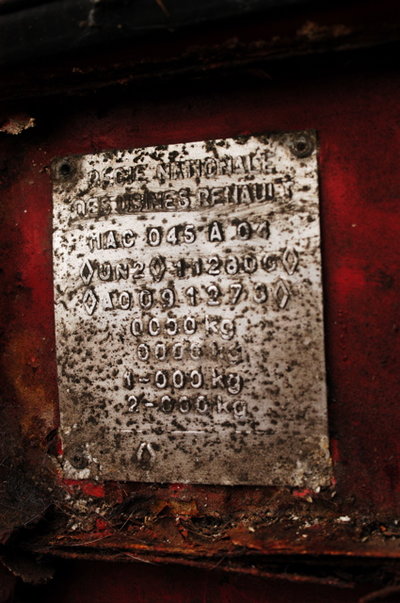 REGIE NATIONALE
DES USINES RENAULT
MAC 045 A 04
◊UN2◊112800◊
◊A0091273◊
0000 kg
0000 kg
1-000 kg
2-000 kg